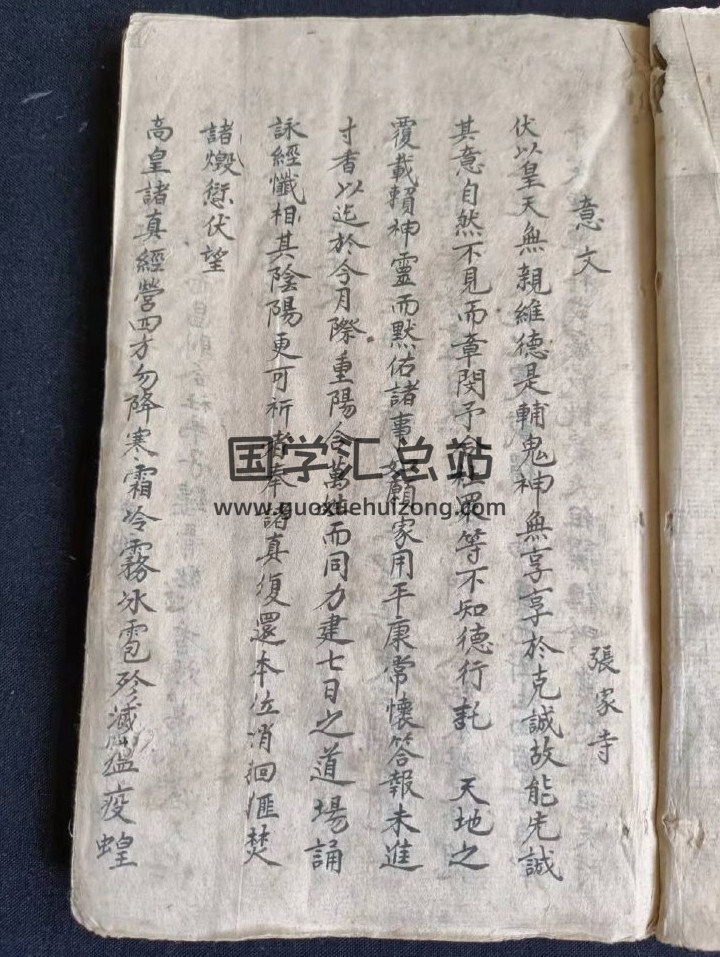 意文 張家寺
伏以皇天無親維德是輔鬼神無享享於克誠故能先誠
其意自然不見而章閔予社眾等不知德行託 天地之
覆載賴神靈而默佑諸事如願家用平康常懷答報未進
寸香以迄於今月際重陽合萬姓而同力建七日之道場誦
詠經懺相其陰陽更可祈者奉諸真復還本位消徊匯焚
諸燬愆伏望
高皇諸真經營四方勿降寒霜冷霧冰雹殄滅瘟疫蝗
国学汇总站
www.guoxuehuizong.com